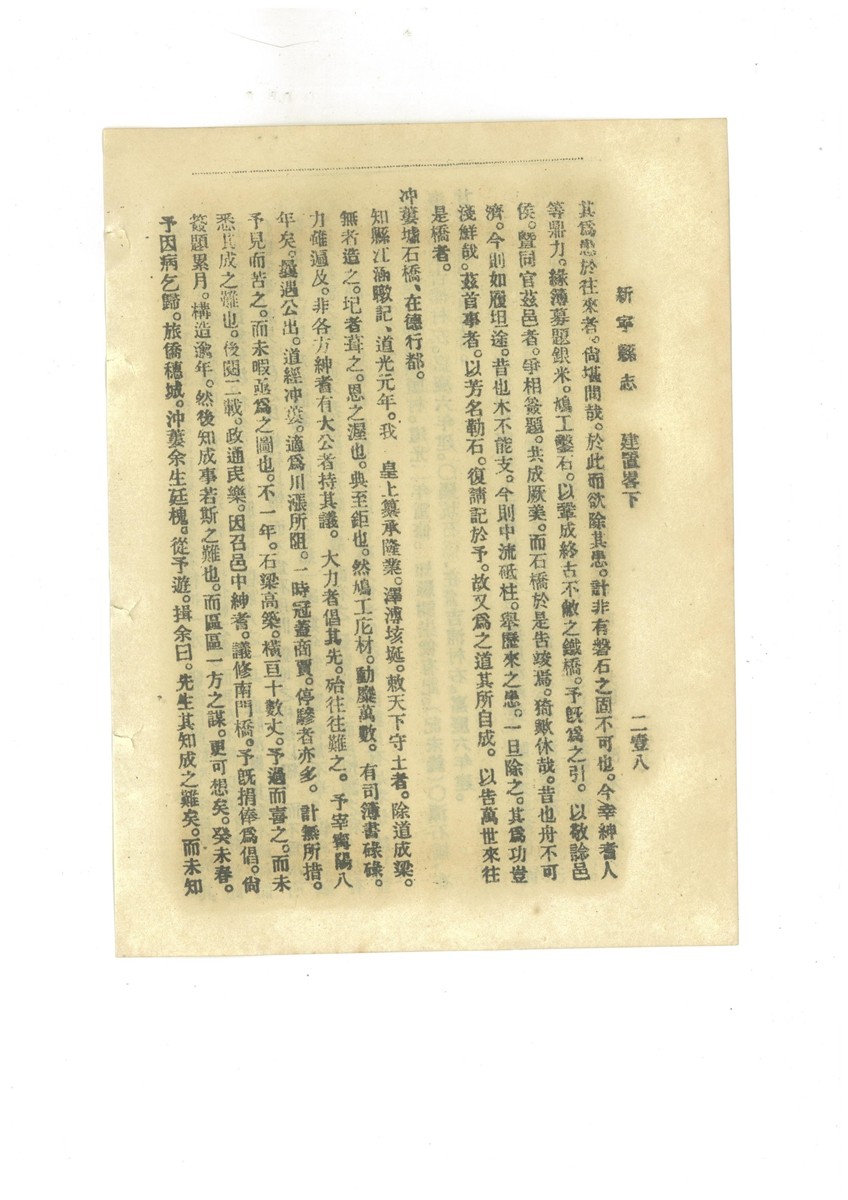 新寧縣志　建置畧下　二壹八
其爲患於往來者。尙堪問哉。於此而欲除其患。計非有磐石之固不可也。今幸紳耆人
等鼎力。緣簿募題銀米。鳩工鑿石。以鞏成終古不敝之鐵橋。予旣爲之引。以敬諗邑
侯。曁同官茲邑者。爭相簽題。共成厥美。而石橋於是吿竣焉。猗歟休哉。昔也舟不可
濟。今則如履坦途。昔也木不能支。今則中流砥柱。舉歷來之患。一旦除之。其爲功豈
淺鮮哉。茲首事者。以芳名勒石。復請記於予。故又爲之道其所自成。以吿萬世來往
是橋者。
冲蔞墟石橋、在德行都。
知縣江涵暾記、道光元年。我　皇上纂承隆業。澤溥垓埏。敕天下守土者。除道成梁。
無者造之。圮者葺之。恩之渥也。典至鉅也。然鳩工庀材。動縻萬數。有司簿書碌碌。
力難遍及。非各方紳耆有大公者持其議。大力者倡其先。殆往往難之。予宰寗陽八
年矣。曩遇公出。道經冲蔞。適爲川漲所阻。一時冠蓋商賈。停驂者亦多。計無所措。
予見而苦之。而未暇亟爲之圖也。不一年。石梁高築。橫亘十數丈。予過而喜之。而未
悉其成之難也。後閱二載。政通民樂。因召邑中紳耆。議修南門橋。予旣捐俸爲倡。尙
簽題累月。構造逾年。然後知成事若斯之難也。而區區一方之謀。更可想矣。癸未春。
予因病乞歸。旅僑穗城。冲蔞余生廷槐。從予遊。揖余曰。先生其知成之難矣。而未知